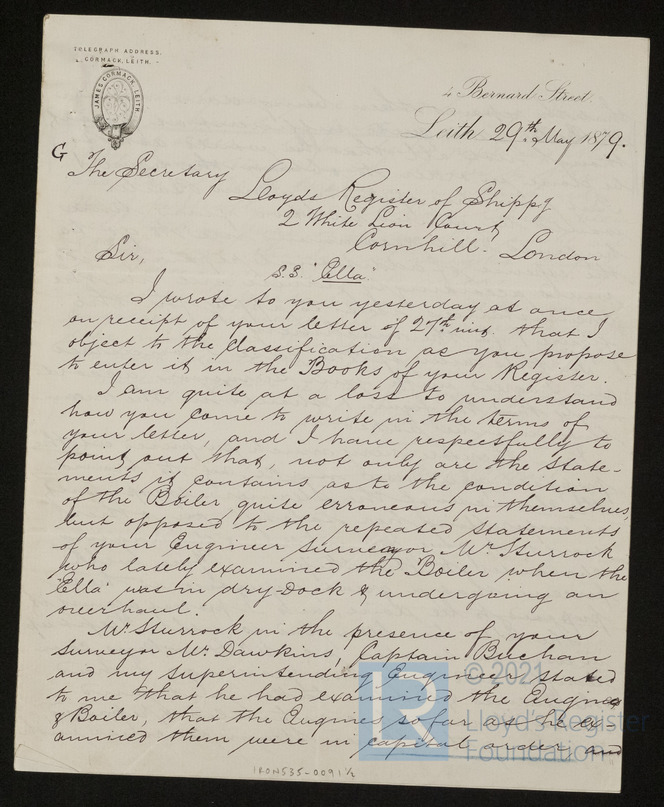 TELEGRAPH ADDRESS.
CORMACK, LEITH.
JAMES CORMACK, LEITH
4 Bernard Street.
Leith 29th May 1879.
G
The Secretary
Lloyds Register of Shippg
2 White Lion Court
Cornhill. London
Sir,
S.S. "Ella"
I wrote to you yesterday at once
on receipt of your letter of 27th inst. that I
object to the Classification as you propose
to enter it in the Books of your Register.
I am quite at a loss to understand
how you come to write in the terms of
your letter, and I have respectfully to
point out that, not only are the state-
ments it contains as to the condition
of the Boiler quite erroneous in themselves,
but opposed to the repeated statements
of your Engineer Surveyor Mr. Sturrock
who lately examined the Boiler when the
"Ella" was in dry-Dock & undergoing an
overhaul.
Mr. Sturrock in the presence of your
Surveyor Mr. Dawkins, Captain Buchan
and my Superintending Engineer, stated
to me that he had examined the Engines
& Boiler, that the Engines so far as he ex-
amined them were in capital order, and
IRON535-0091 1/2
© 2021
Lloyd's Register
Foundation